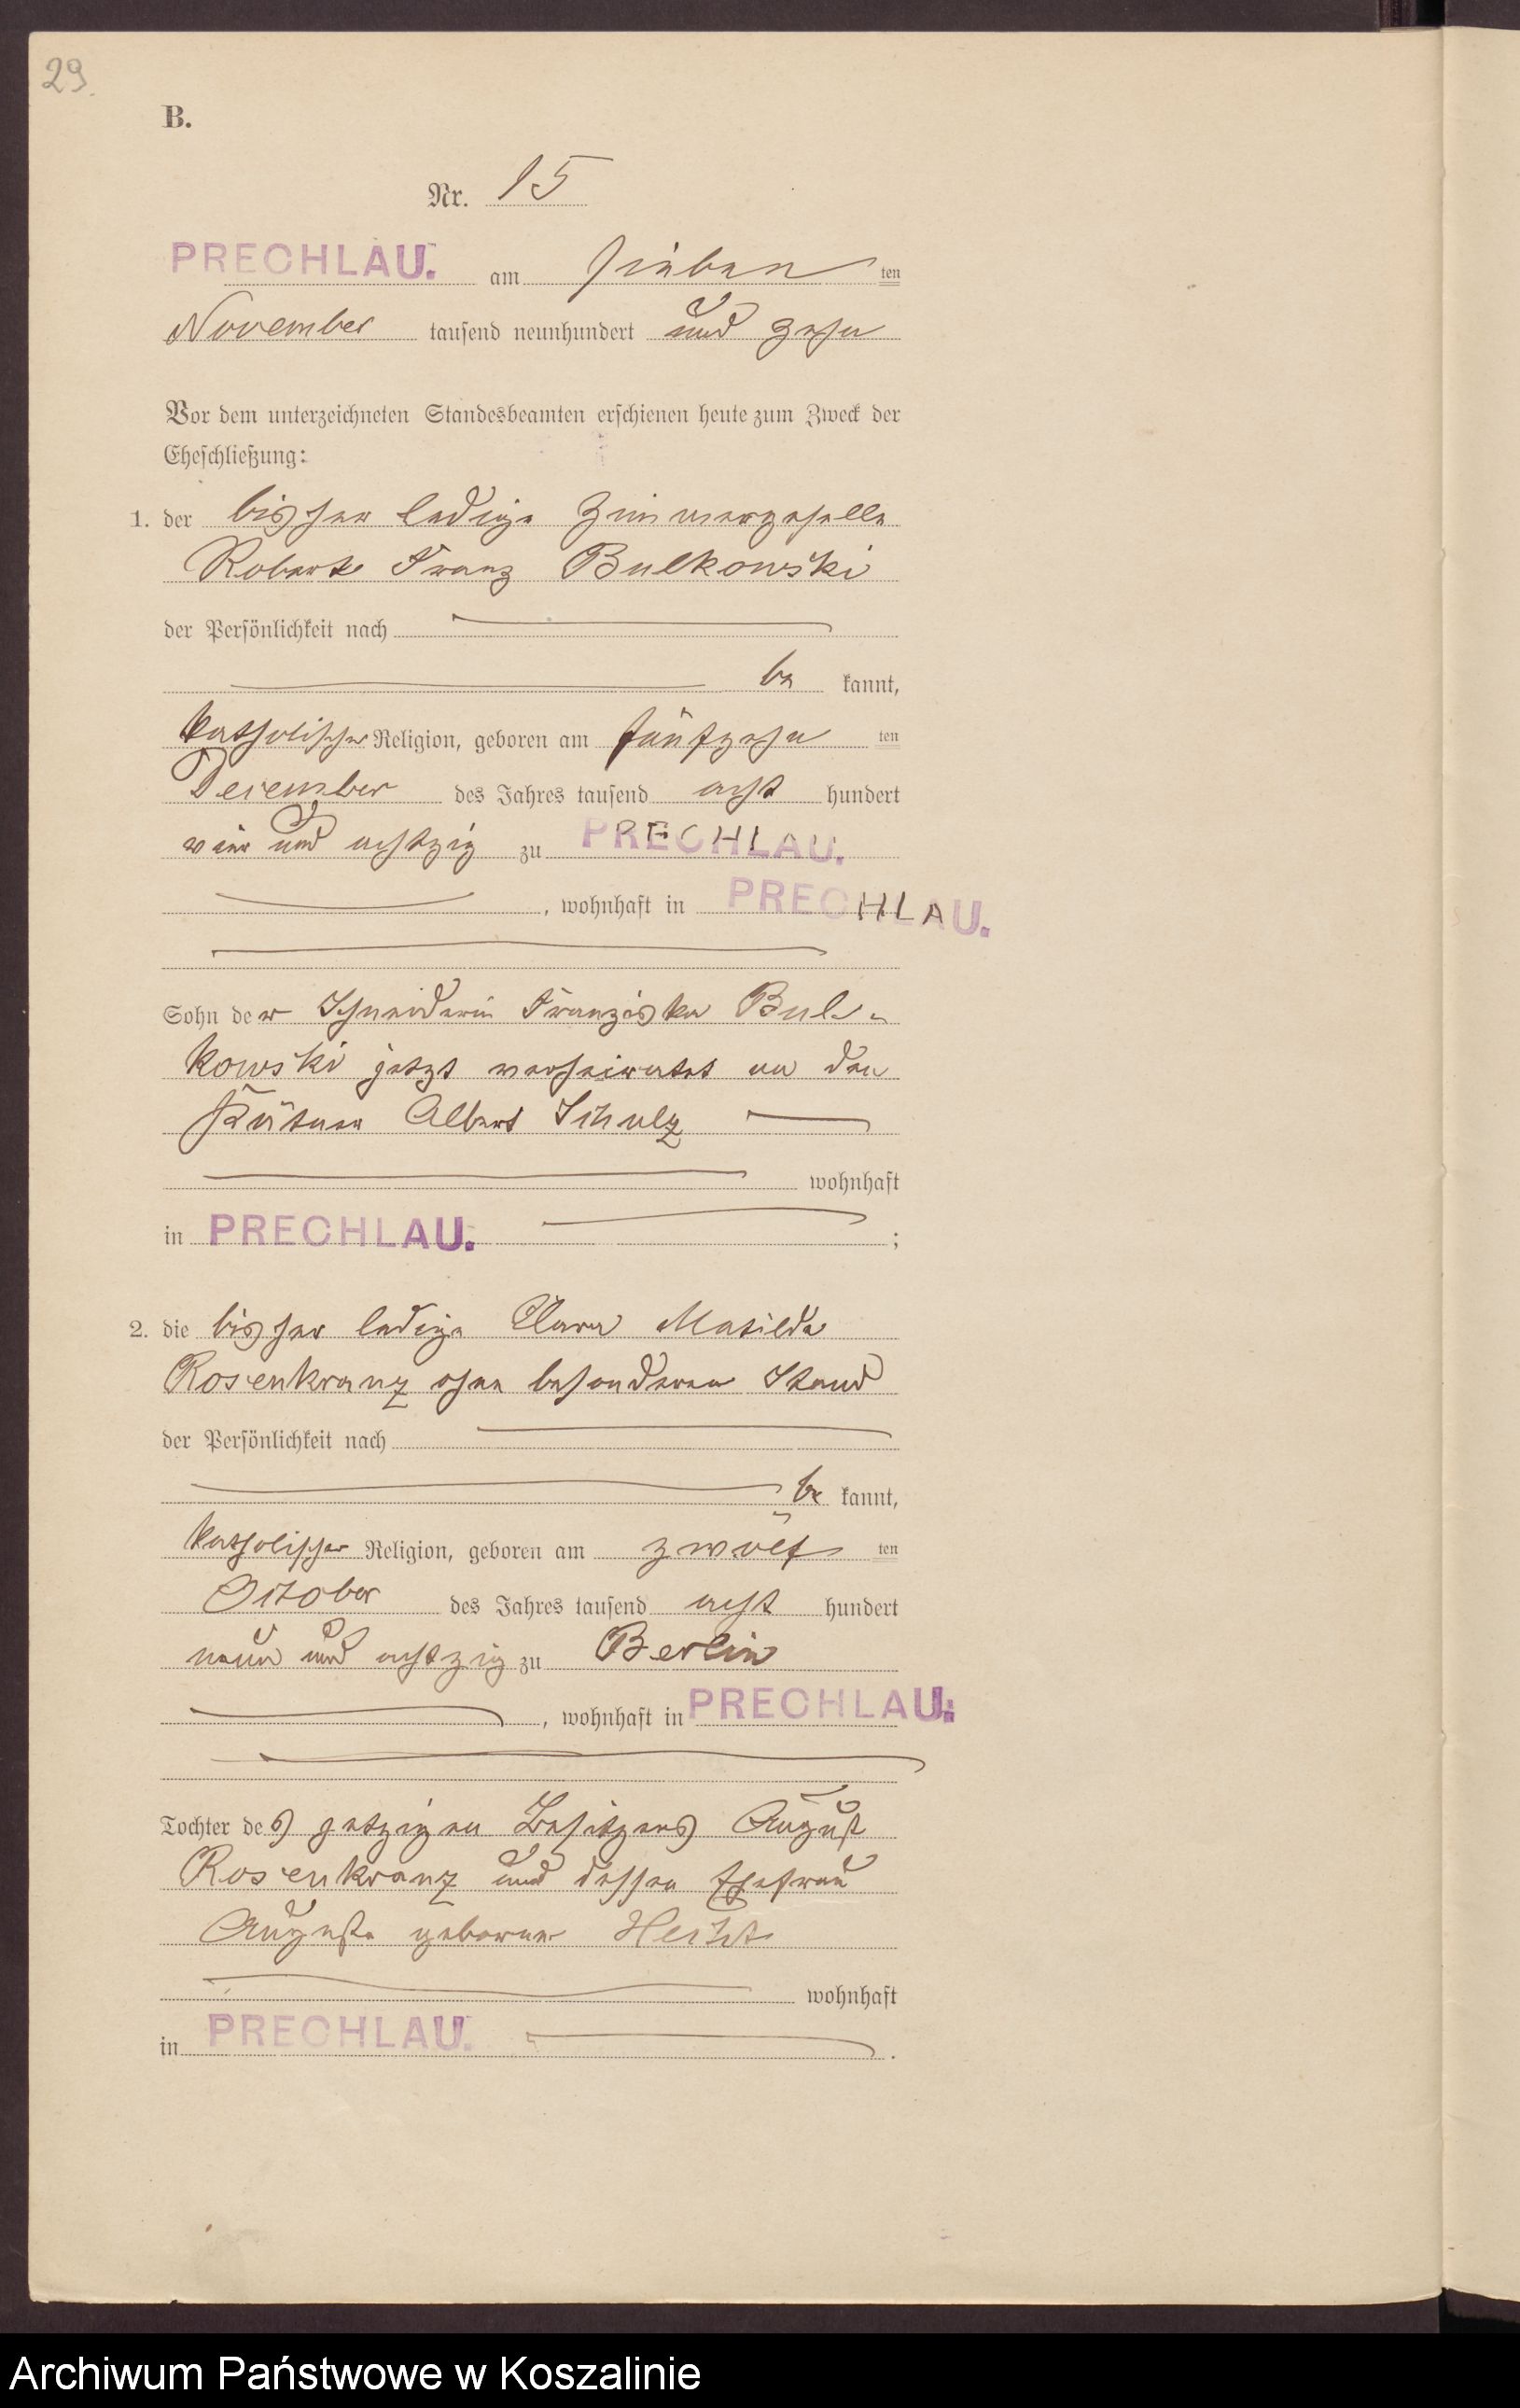 29.
B.
Nr. 15
PRECHLAU. am sieben ten
November tausend neunhundert und zehn
Vor dem unterzeichneten Standesbeamten erschienen heute zum Zweck der
Eheschließung:
1. der bisher ledige Zimmergeselle
Robert Franz Bulkowski
der Persönlichkeit nach
be kannt,
katholischer Religion, geboren am fünfzehn ten
December des Jahres tausend acht hundert
vier und achtzig zu PRECHLAU.
, wohnhaft in PRECHLAU.
Sohn der Schneiderin Franziska Bul-
kowski jetzt verheiratet an den
Albert Schulz
wohnhaft
in PRECHLAU. ;
2. die bisher ledige Clara Matilde
Rosenkranz ohne besonderen Stand
der Persönlichkeit nach
be kannt,
katholischer Religion, geboren am zwölf ten
October des Jahres tausend acht hundert
neun und achtzig zu Berlin
, wohnhaft in PRECHLAU.
Tochter des jetzigen Besitzers August
Rosenkranz und dessen Ehefrau
Auguste geborene
wohnhaft
in PRECHLAU. .
Archiwum Państwowe w Koszalinie